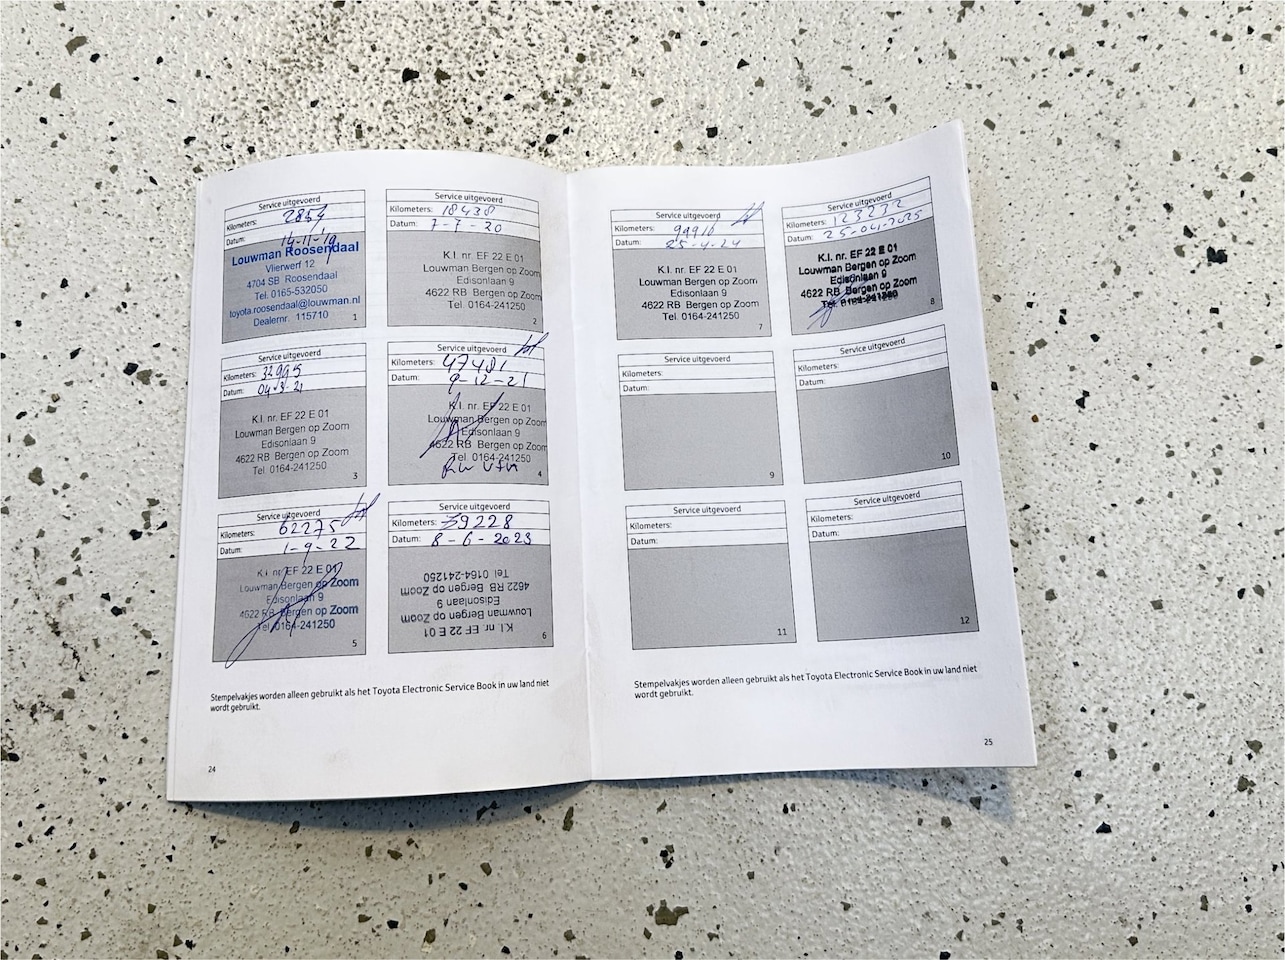 Service uitgevoerd
Kilometers: 2854
Datum: 14-11-19
Louwman Roosendaal
Vlierwerf 12
4704 SB Roosendaal
Tel. 0165-532050
toyota.roosendaal@louwman.nl
Dealernr. 115710
1
Service uitgevoerd
Kilometers: 18438
Datum: 7-7-20
K.I. nr. EF 22 E 01
Louwman Bergen op Zoom
Edisonlaan 9
4622 RB Bergen op Zoom
Tel. 0164-241250
2
Service uitgevoerd
Kilometers: 32995
Datum: 04-3-21
K.I. nr. EF 22 E 01
Louwman Bergen op Zoom
Edisonlaan 9
4622 RB Bergen op Zoom
Tel. 0164-241250
3
Service uitgevoerd
Kilometers: 47481
Datum: 9-12-21
K.I. nr. EF 22 E 01
Louwman Bergen op Zoom
Edisonlaan 9
4622 RB Bergen op Zoom
Tel. 0164-241250
4
Service uitgevoerd
Kilometers: 62275
Datum: 1-9-22
K.I. nr. EF 22 E 01
Louwman Bergen op Zoom
Edisonlaan 9
4622 RB Bergen op Zoom
Tel. 0164-241250
5
Service uitgevoerd
Kilometers: 79228
Datum: 8-6-2023
K.I. nr. EF 22 E 01
Louwman Bergen op Zoom
Edisonlaan 9
4622 RB Bergen op Zoom
Tel. 0164-241250
6
Stempelvakjes worden alleen gebruikt als het Toyota Electronic Service Book in uw land niet
wordt gebruikt.
24
Service uitgevoerd
Kilometers: 99916
Datum: 25-4-24
K.I. nr. EF 22 E 01
Louwman Bergen op Zoom
Edisonlaan 9
4622 RB Bergen op Zoom
Tel. 0164-241250
7
Service uitgevoerd
Kilometers: 123232
Datum: 25-04-2025
K.I. nr. EF 22 E 01
Louwman Bergen op Zoom
Edisonlaan 9
4622 RB Bergen op Zoom
Tel. 0164-241250
8
Service uitgevoerd
Kilometers:
Datum:
9
Service uitgevoerd
Kilometers:
Datum:
10
Service uitgevoerd
Kilometers:
Datum:
11
Service uitgevoerd
Kilometers:
Datum:
12
Stempelvakjes worden alleen gebruikt als het Toyota Electronic Service Book in uw land niet
wordt gebruikt.
25